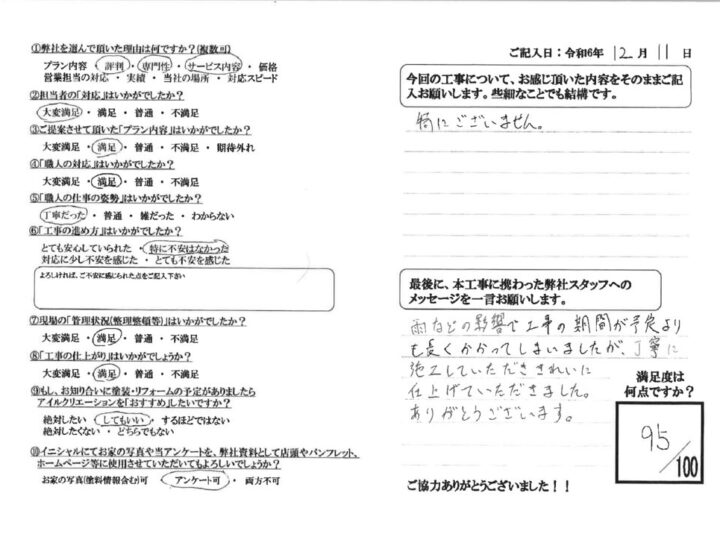 ①弊社を選んで頂いた理由は何ですか?(複数可)
プラン内容 ・ 評判 ・ 専門性 ・ サービス内容 ・ 価格
営業担当の対応 ・ 実績 ・ 当社の場所 ・ 対応スピード
②担当者の「対応」はいかがでしたか?
大変満足 ・ 満足 ・ 普通 ・ 不満足
③ご提案させて頂いた「プラン内容」はいかがでしたか?
大変満足 ・ 満足 ・ 普通 ・ 不満足 ・ 期待外れ
④「職人の対応」はいかがでしたか?
大変満足 ・ 満足 ・ 普通 ・ 不満足
⑤「職人の仕事の姿勢」はいかがでしたか?
丁寧だった ・ 普通 ・ 雑だった ・ わからない
⑥「工事の進め方」はいかがでしたか?
とても安心していられた ・ 特に不安はなかった
対応に少し不安を感じた ・ とても不安を感じた
よろしければ、ご不安に感じられた点をご記入下さい
⑦現場の「管理状況(整理整頓等)」はいかがでしたか?
大変満足 ・ 満足 ・ 普通 ・ 不満足
⑧「工事の仕上がり」はいかがでしょうか?
大変満足 ・ 満足 ・ 普通 ・ 不満足
⑨もし、お知り合いに塗装・リフォームの予定がありましたら
アイルクリエーションを「おすすめ」したいですか?
絶対したい ・ してもいい ・ するほどではない
絶対したくない ・ どちらでもない
⑩イニシャルにてお家の写真や当アンケートを、弊社資料として店頭やパンフレット、
ホームページ等に使用させていただいてもよろしいでしょうか?
お家の写真(塗料情報含む)可 ・ アンケート可 ・ 両方不可
ご記入日:令和6年 12月 11日
今回の工事について、お感じ頂いた内容をそのままご記
入お願いします。些細なことでも結構です。
特にございません。
最後に、本工事に携わった弊社スタッフへの
メッセージを一言お願いします。
雨などの影響で工事の期間が予定より
も長くかかってしまいましたが、丁寧に
施工していただききれいに
仕上げていただきました。
ありがとうございます。
満足度は
何点ですか?
95/100
ご協力ありがとうございました!!